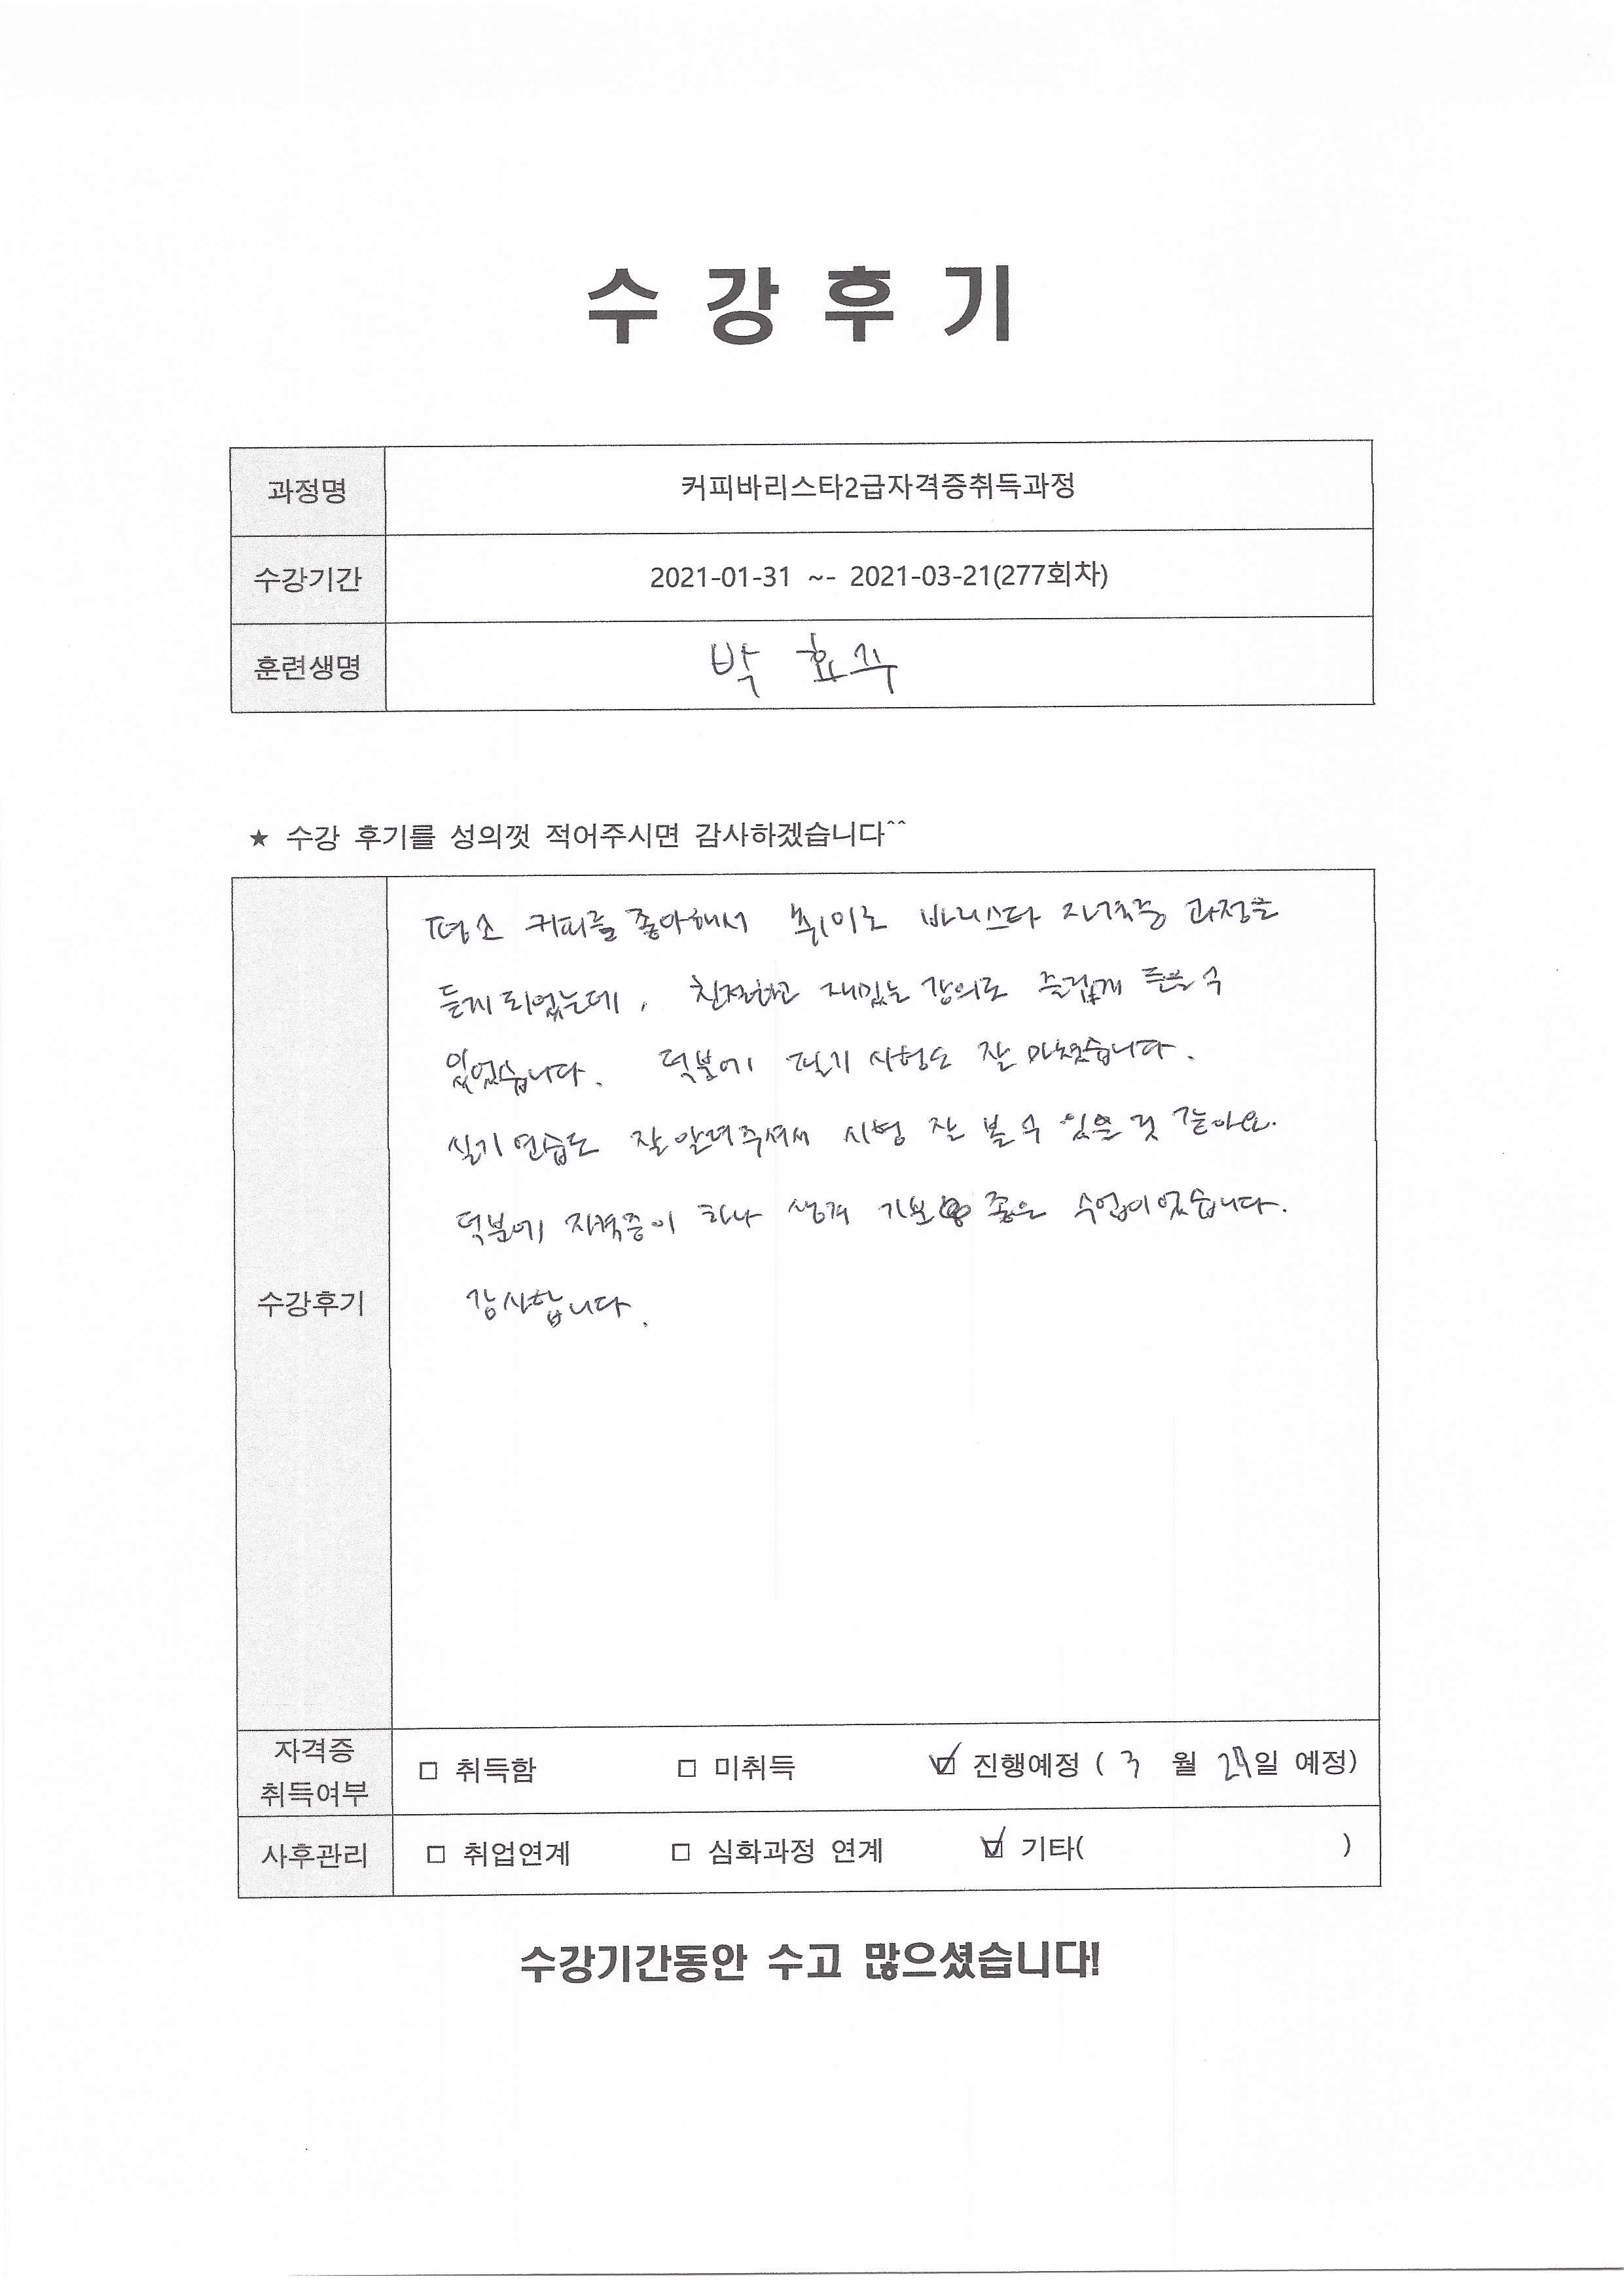 수 강 후 기
과정명 커피바리스타2급자격증취득과정
수강기간 2021-01-31 ~- 2021-03-21(277회차)
훈련생명 박 효주
★ 수강 후기를 성의껏 적어주시면 감사하겠습니다^^
평소 커피를 좋아해서 취미로 바리스타 자격증 과정을
듣게 되었는데, 친절하고 재밌는 강의로 즐겁게 들을 수
있었습니다. 덕분에 필기 시험도 잘 마쳤습니다.
실기 연습도 잘 알려주셔서 시험 잘 볼 수 있을 것 같아요.
덕분에 자격증이 하나 생겨 기분 좋은 수업이었습니다.
수강후기
감사합니다.
자격증
취득여부
□ 취득함 □ 미취득 ☑ 진행예정 ( 3 월 29일 예정)
사후관리 □ 취업연계 □ 심화과정 연계 ☑ 기타( )
수강기간동안 수고 많으셨습니다!